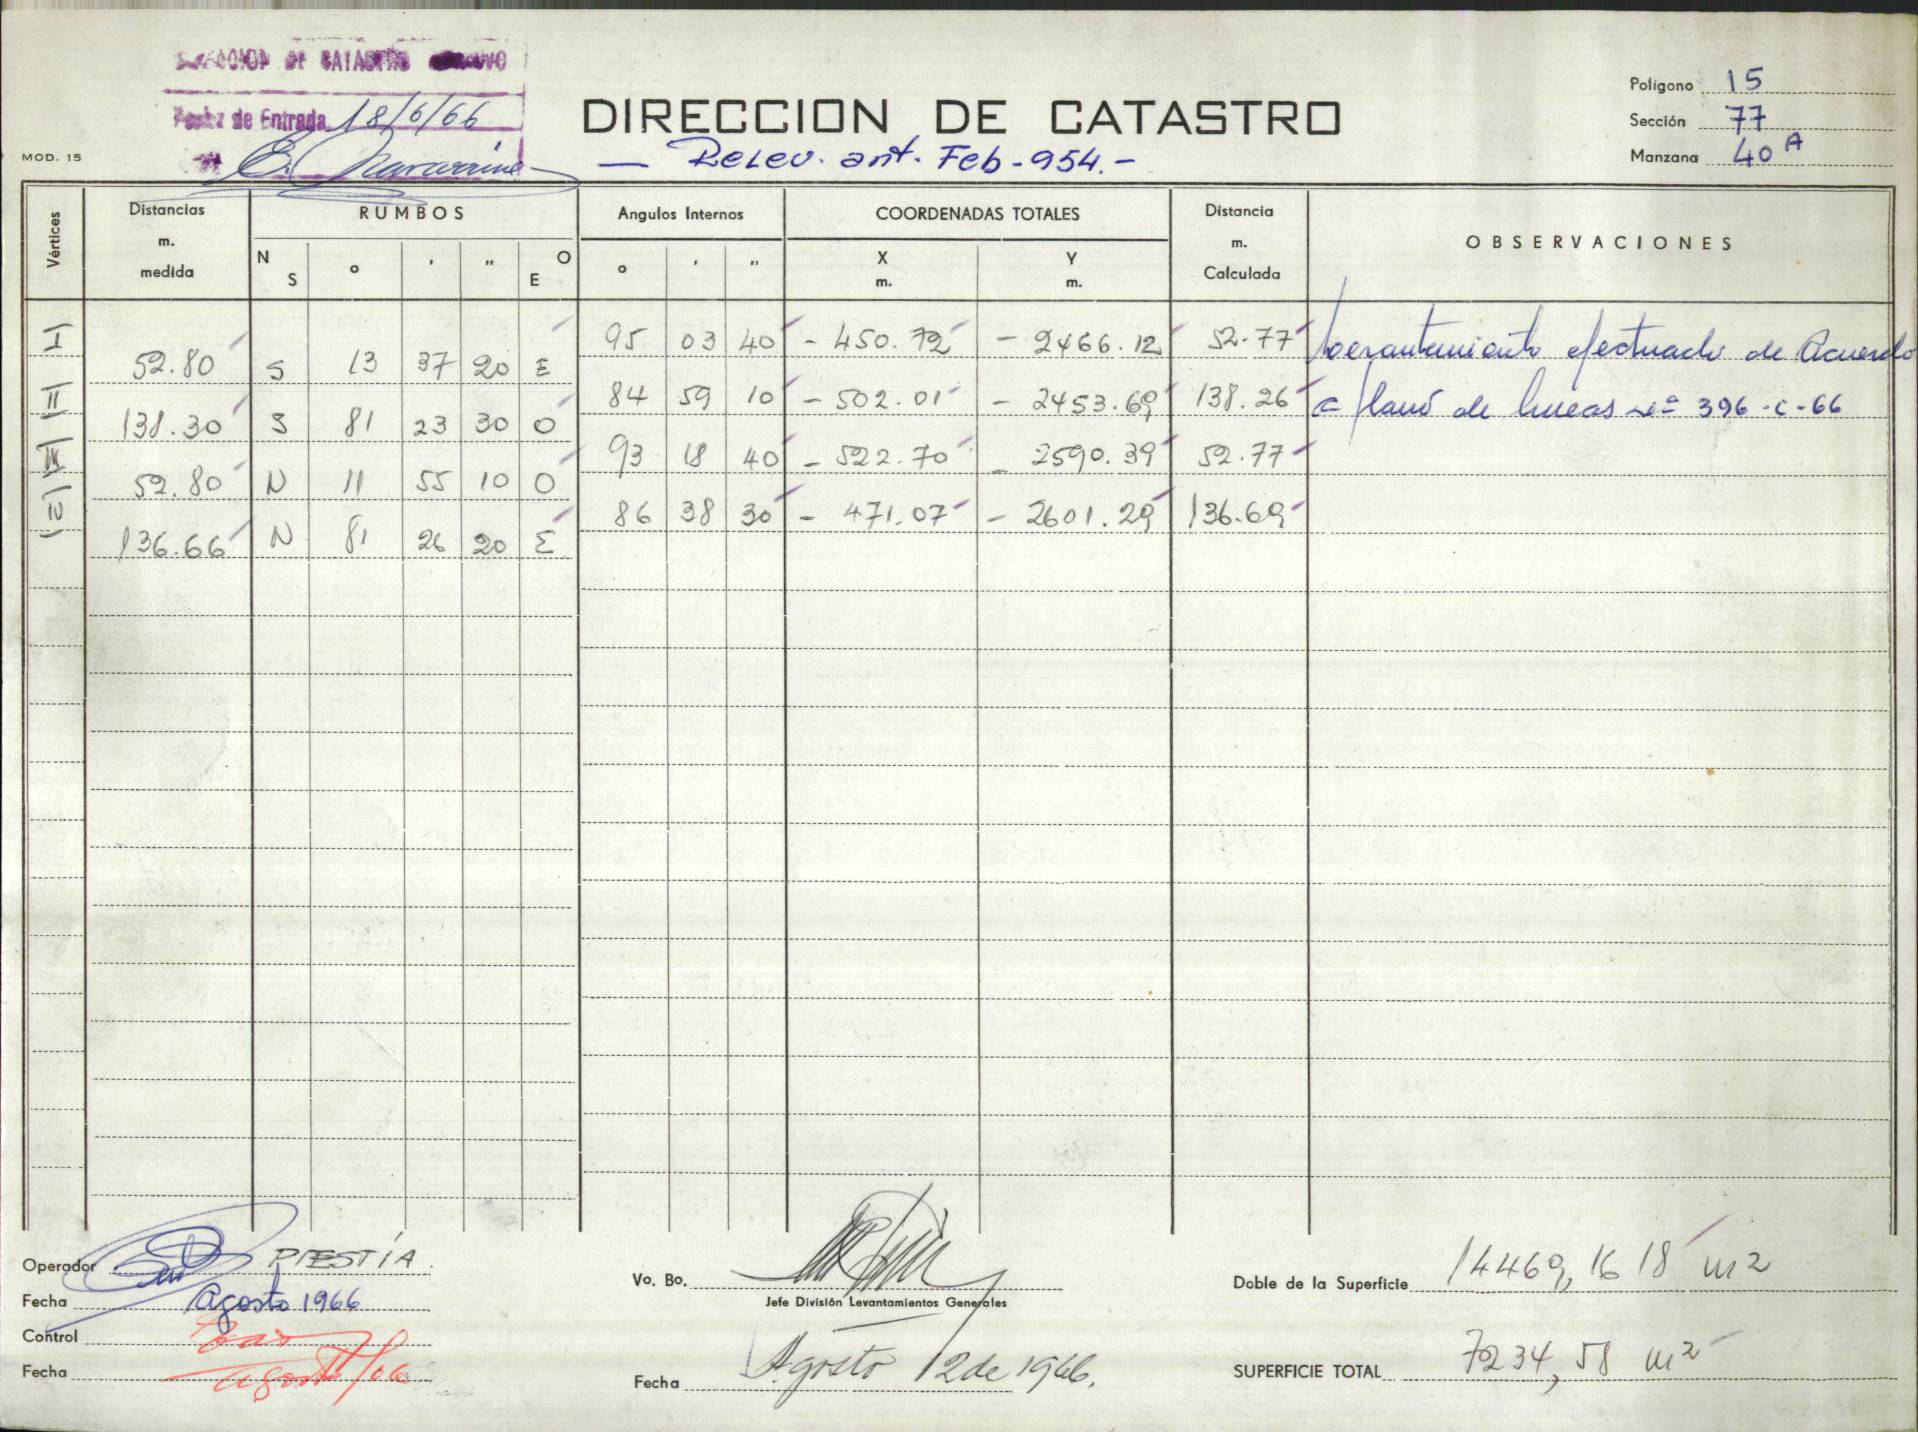 DIRECCION DE CATASTRO ARCHIVO
Fecha de Entrada 18/6/66
DIRECCION DE CATASTRO
— Relev. ant. Feb-954.-
MOD. 15
Polígono 15
Sección 77
Manzana 40 A
Vértices Distancias m. medida RUMBOS N S ° ' " O E Angulos Internos ° ' " COORDENADAS TOTALES X m. Y m. Distancia m. Calculada OBSERVACIONES
I 95 03 40 - 450.72 - 2466.12 52.77 Levantamiento efectuado de Acuerdo
52.80 S 13 37 20 E
II 84 59 10 - 502.01 - 2453.69 138.26 a Plano de lineas nº 396-C-66
138.30 S 81 23 30 O
III 93 18 40 - 522.70 - 2590.39 52.77
52.80 N 11 55 10 O
IV 86 38 30 - 471.07 - 2601.29 136.69
136.66 N 81 26 20 E
Operador PIESTÍA.
Fecha Agosto 1966
Control
Fecha Agosto/66
Vo. Bo.
Jefe División Levantamientos Generales
Fecha Agosto 12 de 1966.
Doble de la Superficie 14469,1618 m2
SUPERFICIE TOTAL 7234,58 m2